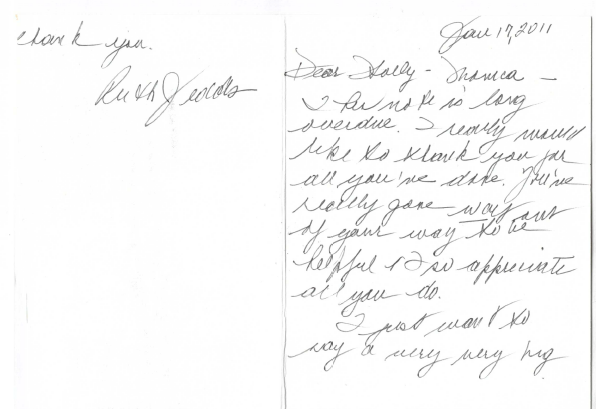 Jan 17, 2011
Dear Holly - Monica -
note is long
overdue. I really would
like to thank you for
all you've done. You've
really gone way out
of your way to be
helpful & I so appreciate
all you do.
I just want to
say a very very big
thank you.
Ruth